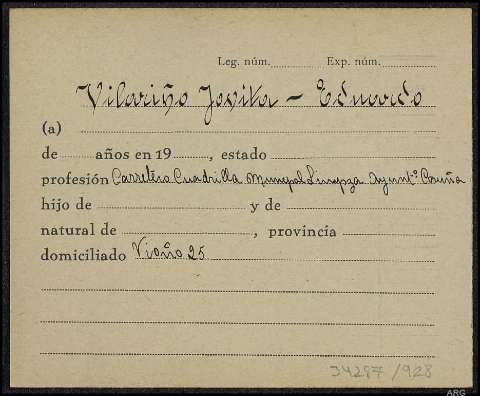 Leg. núm. Exp. núm.
Vilariño Jovita - Eduardo
(a)
de años en 19 , estado
profesión Carretero Cuadrilla Municpal Limpza Ayuntº Coruña
hijo de y de
natural de , provincia
domiciliado Vioño 25
34287/928
ARG